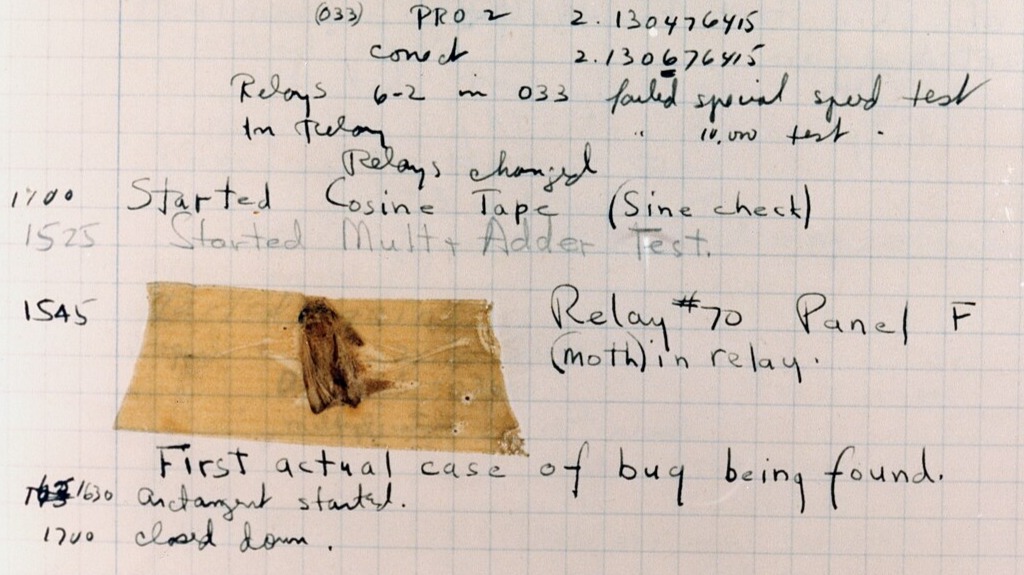 (033) PRO 2 2.130476415
conect 2.130676415
Relays 6-2 in 033 failed special speed test
In Relay " 10,000 test .
Relays changed
1700 Started Cosine Tape (Sine check)
1525 Started Mult + Adder Test.
1545 Relay #70 Panel F
(moth) in relay.
First actual case of bug being found.
1630 arctangent started.
1700 closed down.